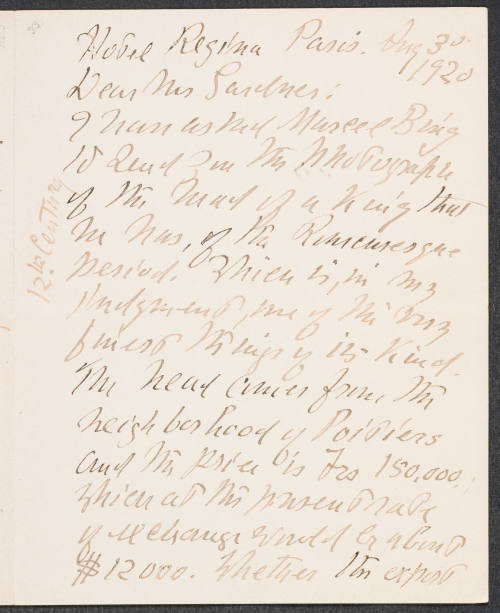 Hotel Regina Paris. Aug 30
1920
Dear Mrs Gardner:
I have asked Marcel Bing
to send you the photograph
of the head of a King that
he has, of the Romanesque
period. Which is, in my
judgment, one of the very
finest things of its kind.
The head comes from the
neighborhood of Poitiers
and the price is Frs 150,000,
which at the present rate
of exchange would be about
$12000. Whether the export
12th Century